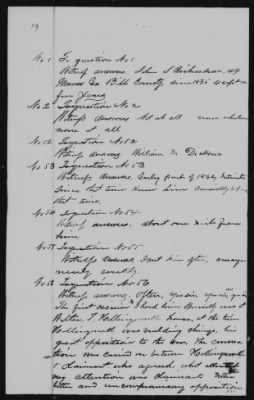 19
No 1 To question No 1
Witness answers. John S Richardson, 49
Macon Ga Bibb County since 1835 except a
few years
No 2 To question No 2
Witness answers Not at all none whatever
none at all
No 52 To question No 52
Witness answers William N. Dickens
No 53 To question No 53
Witness answers Early part of 1862
Since that time knew him
that time.
No 54 To question No 54
Witness answers. about one mile from
him.
No 55 To question No 55
Witness answers met him often, average
nearly weekly
No 56 To question No 56
Witness answers, Often,
The first occasion I heard him
Walter T. Hollingsworth house, at the time
Hollingsworth was building
great opposition to the war. The conversa
tion was carried on between Hollingsworth
& claimant who agreed, what
my attention was
bitter and uncompromising opposition